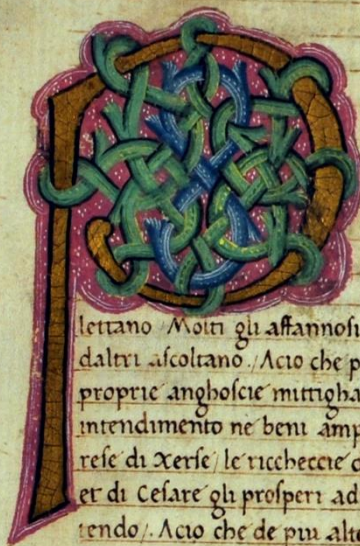 P
lettano Molti gli affannosi
daltri ascoltano ./ Acio che p
proprie anghoscie mittigha
intendimento ne beni amp
rese di Xerse/ le riccheccie c
et di Cesare gli prosperi ad
tendo/. Acio che de piu alto